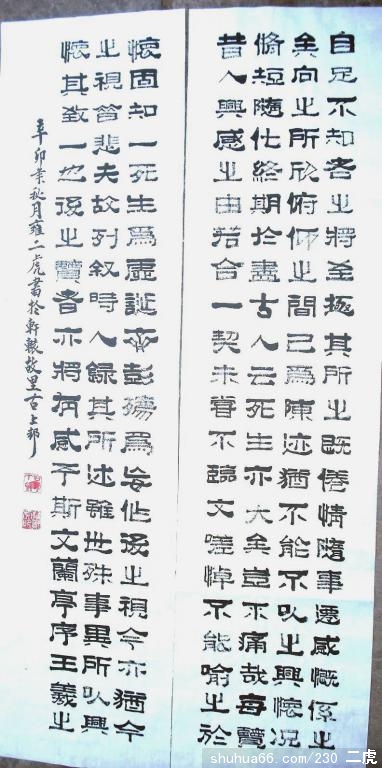 自足不知老之將至極其所之既倦情隨事遷感慨係之
矣向之所欣俯仰之間已為陳迹猶不能不以之興懷況
脩短隨化終期於盡古人云死生亦大矣豈不痛哉每覽
昔人興感之由若合一契未嘗不臨文嗟悼不能喻之於
懷固知一死生為虛誕齊彭殤為妄作後之視今亦猶今
之視昔悲夫故列叙時人錄其所述雖世殊事異所以興
懷其致一也後之覽者亦將有感于斯文蘭亭序王羲之
辛卯業秋月雍二虎書於軒轅故里古上邽
shuhua66.com/230 二虎